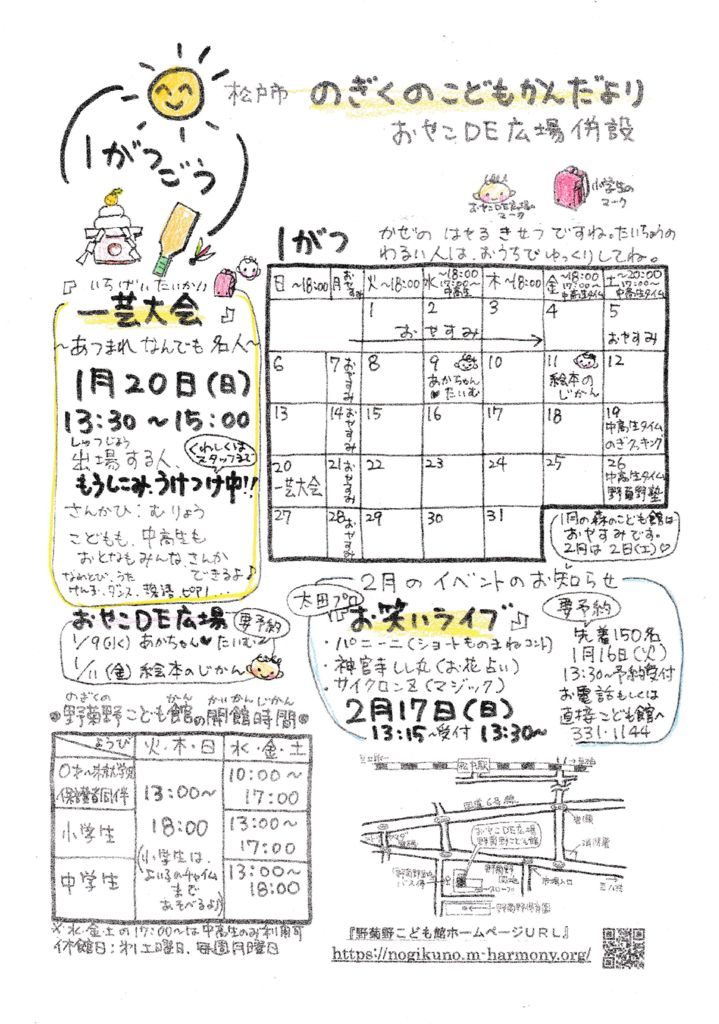 松戸市 のぎくのこどもかんだより
おやこDE広場併設
1がつごう
おやこDE広場の
マーク
小学生の
マーク
1がつ
かぜの はやる きせつ ですね。たいちょうの
わるい人は、おうちで ゆっくりしてね。
日~18:00 月おやすみ 火~18:00 水~18:00 17:00~中高生 木~18:00 金~18:00 17:00~中高生タイム 土~20:00 17:00~中高生タイム
1 2 3 4 5
おやすみ おやすみ
6 7おやすみ 8 9 10 11 12
あかちゃん♥たいむ 絵本のじかん
13 14おやすみ 15 16 17 18 19
中高生タイム のぎクッキング
20 21おやすみ 22 23 24 25 26
一芸大会 中高生タイム 野菊野塾
27 28おやすみ 29 30 31
1月の森のこども館は
おやすみです。
2月は 2日(土)♡
いちげいたいかい
一芸大会
~あつまれ なんでも 名人~
1月20日(日)
13:30~15:00
しゅつじょう
出場する人、
くわしくは
スタッフまで
もうしこみ、うけつけ中!!
さんかひ:むりょう
こどもも、中高生も
おとなもみんな、さんか
できるよ♪
なわとび、うた
けん玉、ダンス、落語、ピアノ...
おやこDE広場 要予約
1/9(水) あかちゃん♥たいむ
1/11(金) 絵本のじかん
2月のイベントのお知らせ
太田プロ
お笑いライブ♪
・パニーニ(ショートものまねコント)
・神宮寺しし丸(お花占い)
・サイクロンZ(マジック)
2月17日(日)
13:15~受付 13:30~
要予約
先着150名
1月16日(火)
13:30~予約受付
お電話もしくは
直接こども館へ
331-1144
のぎくの かん かいかんじかん
野菊野こども館の開館時間
ようび 火・木・日 水・金・土
0才~未就学児
保護者同伴
10:00~
17:00
小学生
13:00~
17:00
中学生
13:00~
18:00
13:00~
18:00
(小学生は、
よいこのチャイム
まで
あそべるよ♪)
※水・金・土の17:00~は中高生のみ利用可
休館日:第1土曜日、毎週月曜日
松戸駅
国道6号線
岩瀬
消防署
おやこDE広場
野菊野こども館
野菊野団地
バス停
野菊野保育園
『野菊野こども館ホームページURL』
https://nogikuno.m-harmony.org/